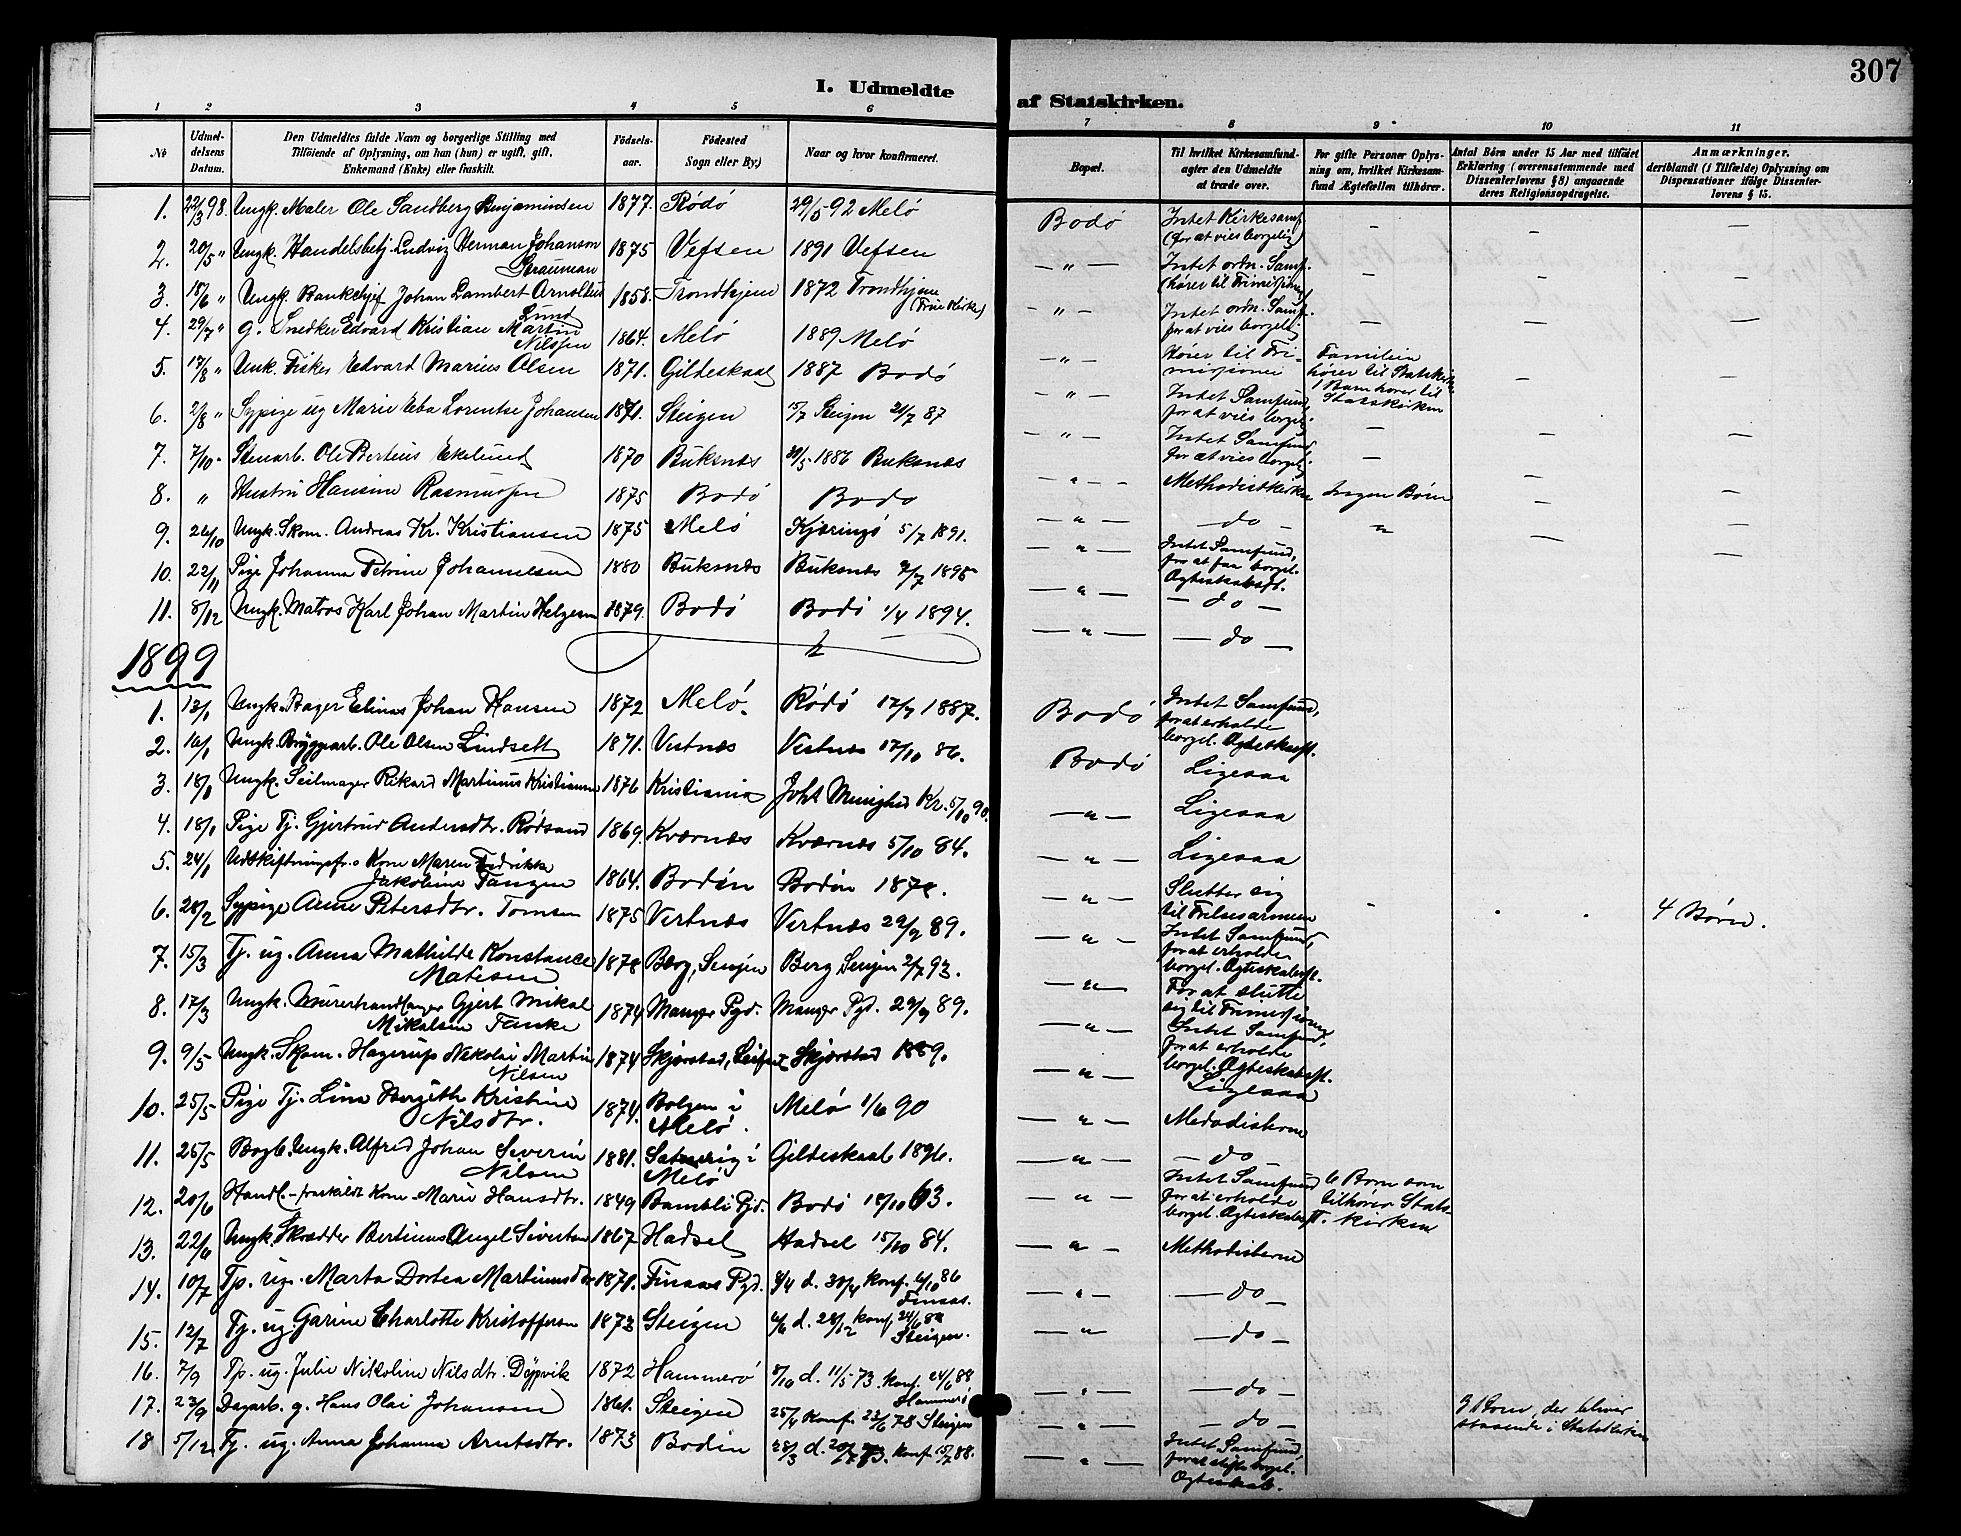 307
I. Udmeldte af Statskirken.
1 2 3 4 5 6 7 8 9 10 11
No
Udmeldelsens Datum.
Den Udmeldtes fulde Navn og borgerlige Stilling med
Tilföiende af Oplysning, om han (hun) er ugift, gift,
Enkemand (Enke) eller fraskilt.
Födselsaar.
Födested
Sogn eller By)
Naar og hvor konfirmeret.
Bopæl.
Til hvilket Kirkesamfund
agter den Udmeldte
at træde over.
For gifte Personer Oplysning
om, hvilket Kirkesamfund
Ægtefællen tilhörer.
Antal Börn under 15 Aar med tilföiet
Erklæring (overensstemmende med
Dissenterlovens § 8) angaaende
deres Religionsopdragelse.
Anmærkninger.
deriblandt (i Tilfælde) Oplysning om
Dispensationer ifölge Dissenterlovens § 15.
1. 22/3 98. Ungk. Maler Ole Sandberg Benjaminsen 1877. Rödö 29/5 92 Melö Bodö Intet Kirkesamf. (for at vies borgelig) - - -
2. 20/5 " Ungk. Handelsbetj. Ludvig Herman Johanson 1875 Vefsen 1891 Vefsen - " - Intet ordn. Samf. (hörer til Frimisjone) - - -
3. 18/6 " Ungk. Bankchef Johan Lambert Arnoldus Lund 1858. Trondhjem 1872 Trondhjem (Frue Kirke) - " - Intet ordn. Samf. for at vies borgelig. - - -
4. 29/7 " g. Snedker Edvard Kristian Martin Nilssen 1864. Melö 1889 Melö - " - Hörer til Frimisjonen Familien hörer til Statskirken 1 Barn hörer til Statskirken
5. 17/8 " Unk. Fisker Edvard Marius Olsen 1871. Gildeskaal 1887 Bodö - " - Intet Samfund, for at vies borgel.
6. 2/8 " Sypige ug Marie Eba Lorentse Johansen 1871. Steigen 15/7 Steigen 21/7 87 - " - Intet Samfund for at vies borgelig.
7. 7/10 - Stenarb. Ole Bertius Ekelund 1870 Buksnæs 30/5 - 1886 Buksnæs - " - Methodistkirken Ingen Börn - -
8. " Hustru Hansine Rasmussen 1875 Bodö Bodo - " - - do - " - -
9. 26/10 Ungk. Skom. Andreas Kr. Kristiansen 1875 Melö Kjæringö 5/7 1891. - " - Intet Samfund, for at faa borgel. Ægteskabsst. - -
10. 22/11 Pige Johanna Petrine Johannesen 1880 Buksnæs Buksnæs 7/7 1895 - " - - do -
11. 8/12 Ungk. Matros Karl Johan Martin Helgesen 1879. Bodö Bodö 1/4 1894. - " - - do -
1899
1. 13/1 Ungk. Bager Elinas Johan Hansen 1872 Melö. Rödö 17/7 1887. Bodö Intet Samfund, for at erholde borgel. Ægteskabsst.
2. 16/1 Ungk. Bryggearb. Ole Olsen Lindsett 1871. Vestnæs Vestnæs 17/10 86. Bodö Ligesaa
3. 18/1 Ungk. Seilmager Rikard Martinus Kristiansen 1876 Kristiania Joh Menighed Kr. 5/10 90. - " - Ligesaa
4. 18/1 Pige Tj. Gjertrud Andersdtr. Rödsand 1869. Kværnæs Kværnæs 5/10 84. - " - Ligesaa
5. 24/1 Udskiftningsf. Kone Maren Fredrikke Jakobine Tangen 1864. Bodin Bodin 1878. - " - Slutter sig til Frelsesarmeen 4 Börn.
6. 28/2 Sypige Anne Petersdtr. Tomsen 1875 Vestnæs Vestnæs 29/9 89. - " - Intet Samfund, for at erholde borgel. Ægteskabsst.
7. 15/3 Tj. ug. Anna Mathilde Konstance Matesen 1878 Berg, Senjen Berg Senjen 2/7 93. - " - For at slutte sig til Frimisjonen
8. 17/3 Ungk. Murerhandlanger Gjert Mikal Mikalsen Tanke 1874 Manger Pgd. Manger Pgd. 29/9 89. - " - Intet Samfund, for at erholde borgel. Ægteskabsst.
9. 9/5 Ungk. Skom. Hagerup Nikolai Martin Nilsen 1874 Skjerstad, Skjerstad 1889. - " - Ligesaa
10. 25/5 Pige Tj. Lina Bergithe Kristine Nilsdtr. 1874. Bolgen i Melö. Melö 1/6 90 - " - Metodisterne
11. 25/5 Bogb. Ungk. Alfred Johan Severin Nilsen 1881. i Melö Gildeskaal 1896. - " - - do
12. 20/6 Handl. - fraskildt Kone Marie Hansdtr. 1849 Bambli Pgd. Bodö 18/10 63. - " - Intet Samfund for at erholde borgel. Ægteskabsst. 6 Börn som tilhörer Statskirken
13. 22/6 Ungk. Skrædder Bertinus Angel Sivertsen 1867 Hadsel Hadsel 15/10 84. - " - Methodisterne
14. 10/7 Tj. ug. Marta Dortea Martinusdtr 1871. Finaas Pgd. 8/4 d. 30/4 konf. 6/10 86 Finaas. - " - - do -
15. 12/7 Tj. ug. Garine Charlotte Kristoffersen 1873 Steigen 4/6 d. 28/12 konf 24/6 88 Steigen. - " - - do -
16. 7/9 Tj. ug. Julie Nikoline Nilsdtr. Döpvik 1872 Hammerö 8/10 d. 11/5 73. konf. 24/6 88 Hammerö - " - - do -
17. 23/9 Dagarb. g. Hans Olai Johansen 1861. Steigen 25/4 konf. 23/6 78 Steigen - " - - do - 3 Börn, der bliver staaende i Statskirken
18 5/12 Tj. ug. Anna Johanna Arntsdtr. 1873 Bodin 28/3 d. 20/7 73. konf 15/7 88. - " - Intet Samfund for at stifte borgel. Ægteskab.